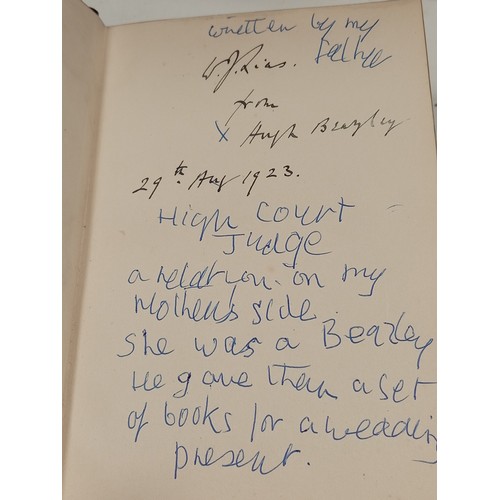 written by my
father
W. J. Lias.
from
x Hugh Beazley
29th Aug 1923.
High Court
Judge
a relatyon on my
Mothers side.
She was a Beazley
He gave them a set
of books for a wedding
present.